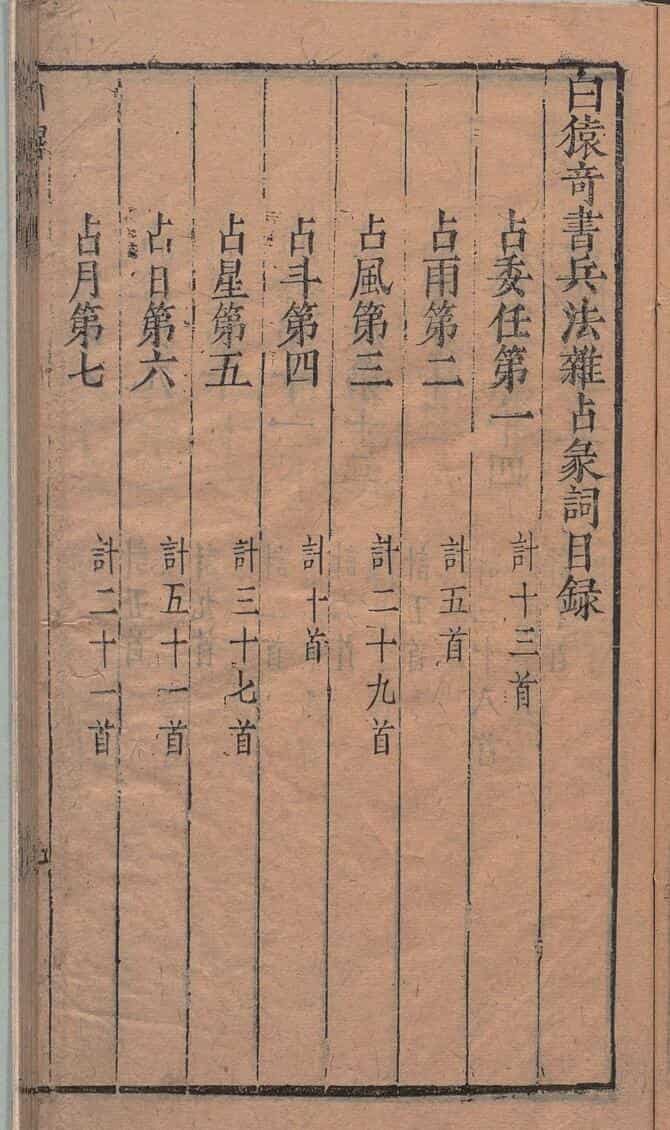 白猿奇書兵法雜占彖詞目録
占委任第一 計十三首
占雨第二 計五首
占風第三 計二十九首
占斗第四 計十首
占星第五 計三十七首
占日第六 計五十一首
占月第七 計二十一首